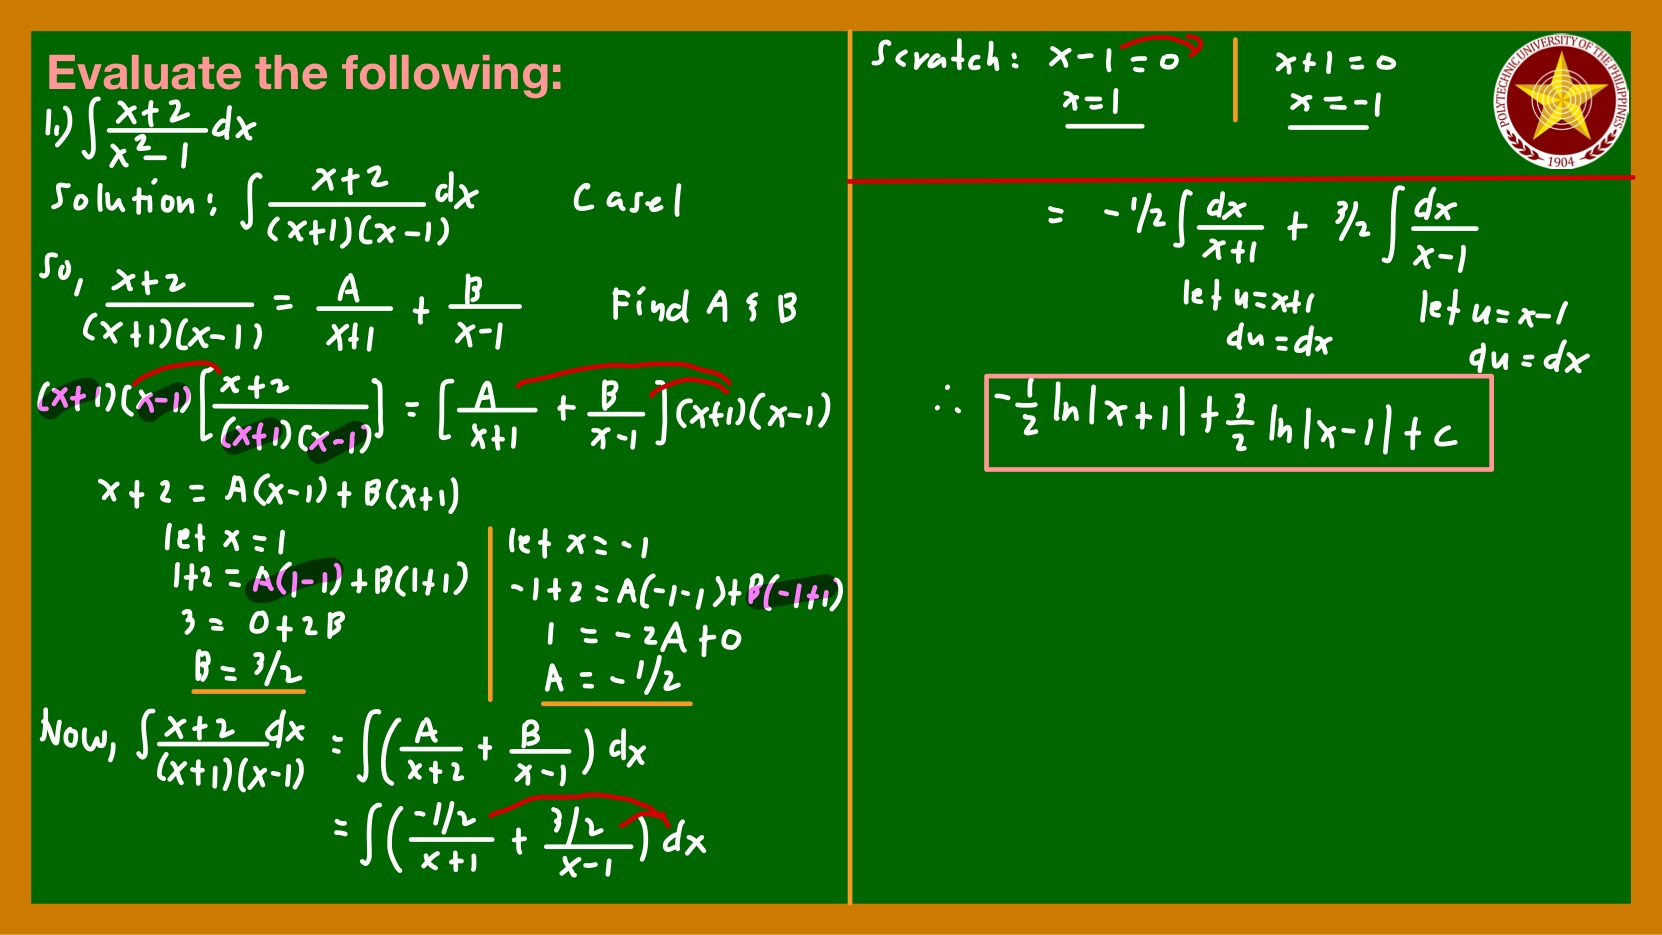 Evaluate the following:
1.) ∫ x+2 / x²-1 dx
Solution: ∫ x+2 / (x+1)(x-1) dx   Case 1
So, x+2 / (x+1)(x-1) = A / x+1 + B / x-1   Find A & B
(x+1)(x-1) [ x+2 / (x+1)(x-1) ] = [ A / x+1 + B / x-1 ] (x+1)(x-1)
x+2 = A(x-1) + B(x+1)
let x = 1
1+2 = A(1-1) + B(1+1)
3 = 0+2B
B = 3/2
let x = -1
-1+2 = A(-1-1) + B(-1+1)
1 = -2A+0
A = -1/2
Now, ∫ x+2 dx / (x+1)(x-1) = ∫ ( A / x+2 + B / x-1 ) dx
= ∫ ( -1/2 / x+1 + 3/2 / x-1 ) dx
Scratch: x-1 = 0
x = 1
x+1 = 0
x = -1
POLYTECHNIC UNIVERSITY OF THE PHILIPPINES
1904
= -1/2 ∫ dx / x+1 + 3/2 ∫ dx / x-1
let u = x+1
du = dx
let u = x-1
du = dx
∴ -1/2 ln|x+1| + 3/2 ln|x-1| + c